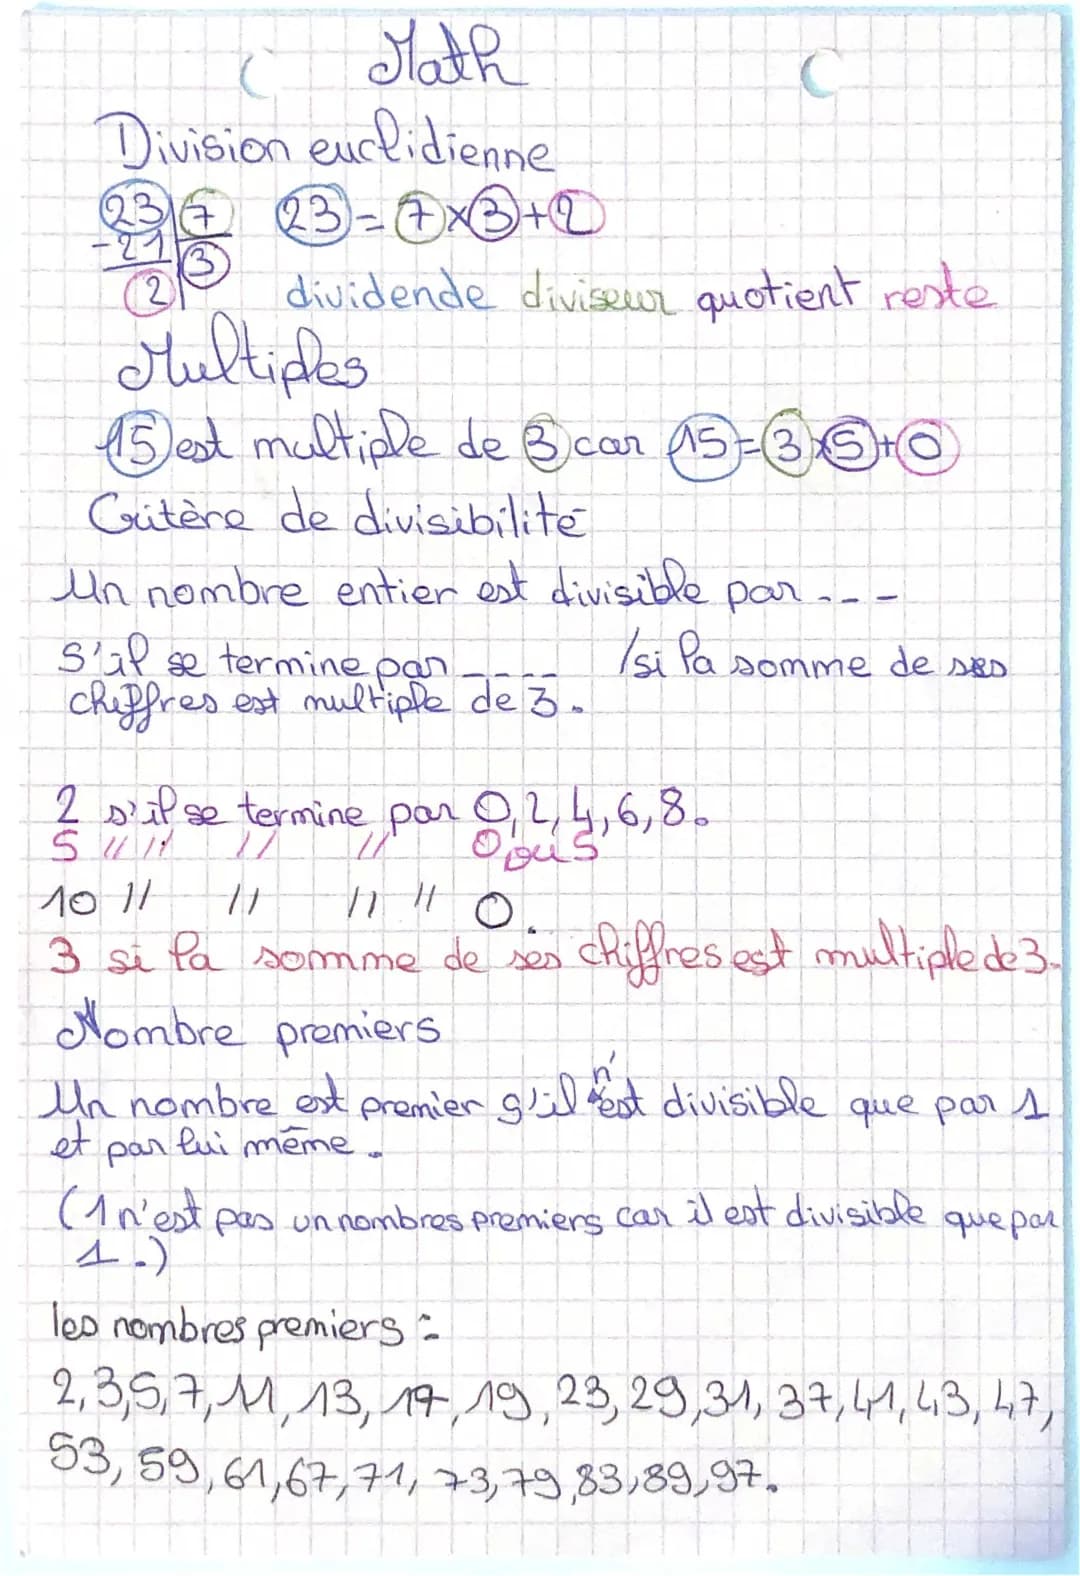 Math
Division euclidienne
23 7 23 = 7 × 3 + 2
- 21 3
2 dividende diviseur quotient reste
Multiples
15 est multiple de 3 car 15 = 3 × 5 + 0
Critère de divisibilité
Un nombre entier est divisible par ---
s'il se termine par ---- /si la somme de ses
chiffres est multiple de 3.
2 s'il se termine par 0, 2, 4, 6, 8.
5 // // // // 0 ou 5
10 // // // // 0.
3 si la somme de ses chiffres est multiple de 3.
Nombre premiers
Un nombre est premier s'il n'est divisible que par 1
et par lui même.
(1 n'est pas un nombres premiers car il est divisible que par
1.)
les nombres premiers :
2, 3, 5, 7, 11, 13, 17, 19, 23, 29, 31, 37, 41, 43, 47,
53, 59, 61, 67, 71, 73, 79, 83, 89, 97.